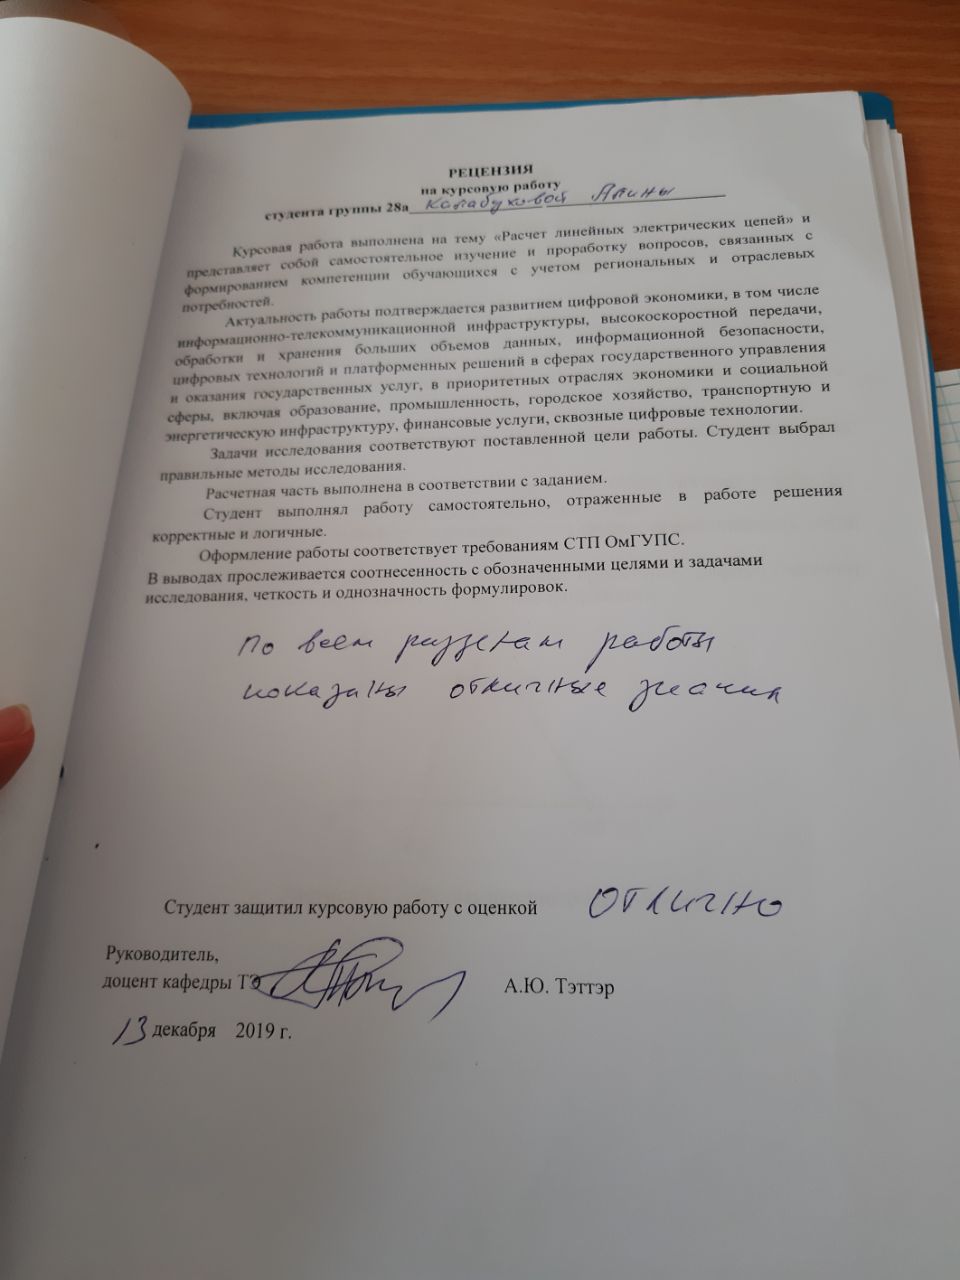 РЕЦЕНЗИЯ
на курсовую работу
студента группы 28а Алины
Курсовая работа выполнена на тему «Расчет линейных электрических цепей» и
представляет собой самостоятельное изучение и проработку вопросов, связанных с
формированием компетенции обучающихся с учетом региональных и отраслевых
потребностей.
Актуальность работы подтверждается развитием цифровой экономики, в том числе
информационно-телекоммуникационной инфраструктуры, высокоскоростной передачи,
обработки и хранения больших объемов данных, информационной безопасности,
цифровых технологий и платформенных решений в сферах государственного управления
и оказания государственных услуг, в приоритетных отраслях экономики и социальной
сферы, включая образование, промышленность, городское хозяйство, транспортную и
энергетическую инфраструктуру, финансовые услуги, сквозные цифровые технологии.
Задачи исследования соответствуют поставленной цели работы. Студент выбрал
правильные методы исследования.
Расчетная часть выполнена в соответствии с заданием.
Студент выполнял работу самостоятельно, отраженные в работе решения
корректные и логичные.
Оформление работы соответствует требованиям СТП ОмГУПС.
В выводах прослеживается соотнесенность с обозначенными целями и задачами
исследования, четкость и однозначность формулировок.
По всем разделам работы
показаны отличные знания
Студент защитил курсовую работу с оценкой отлично
Руководитель,
доцент кафедры ТЭ А.Ю. Тэттэр
13 декабря 2019 г.